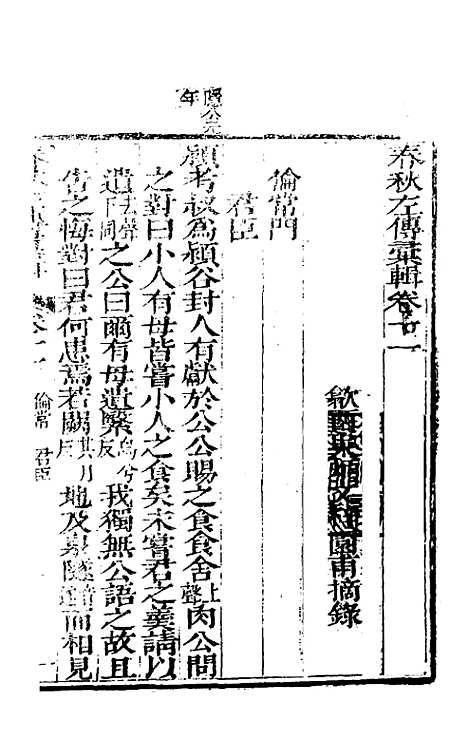 春秋左傳彙輯卷十一
歙 園甫摘錄
倫常門
君臣
隱公元年
潁考叔為潁谷封人有獻於公公賜之食食舍上聲肉公問
之對曰小人有母皆嘗小人之食矣未嘗君之羹請以
遺去聲下同之公曰爾有母遺繄兮反我獨無公語之故且
告之悔對曰君何患焉若闕其月反地及泉隧而相見
倫常 君臣